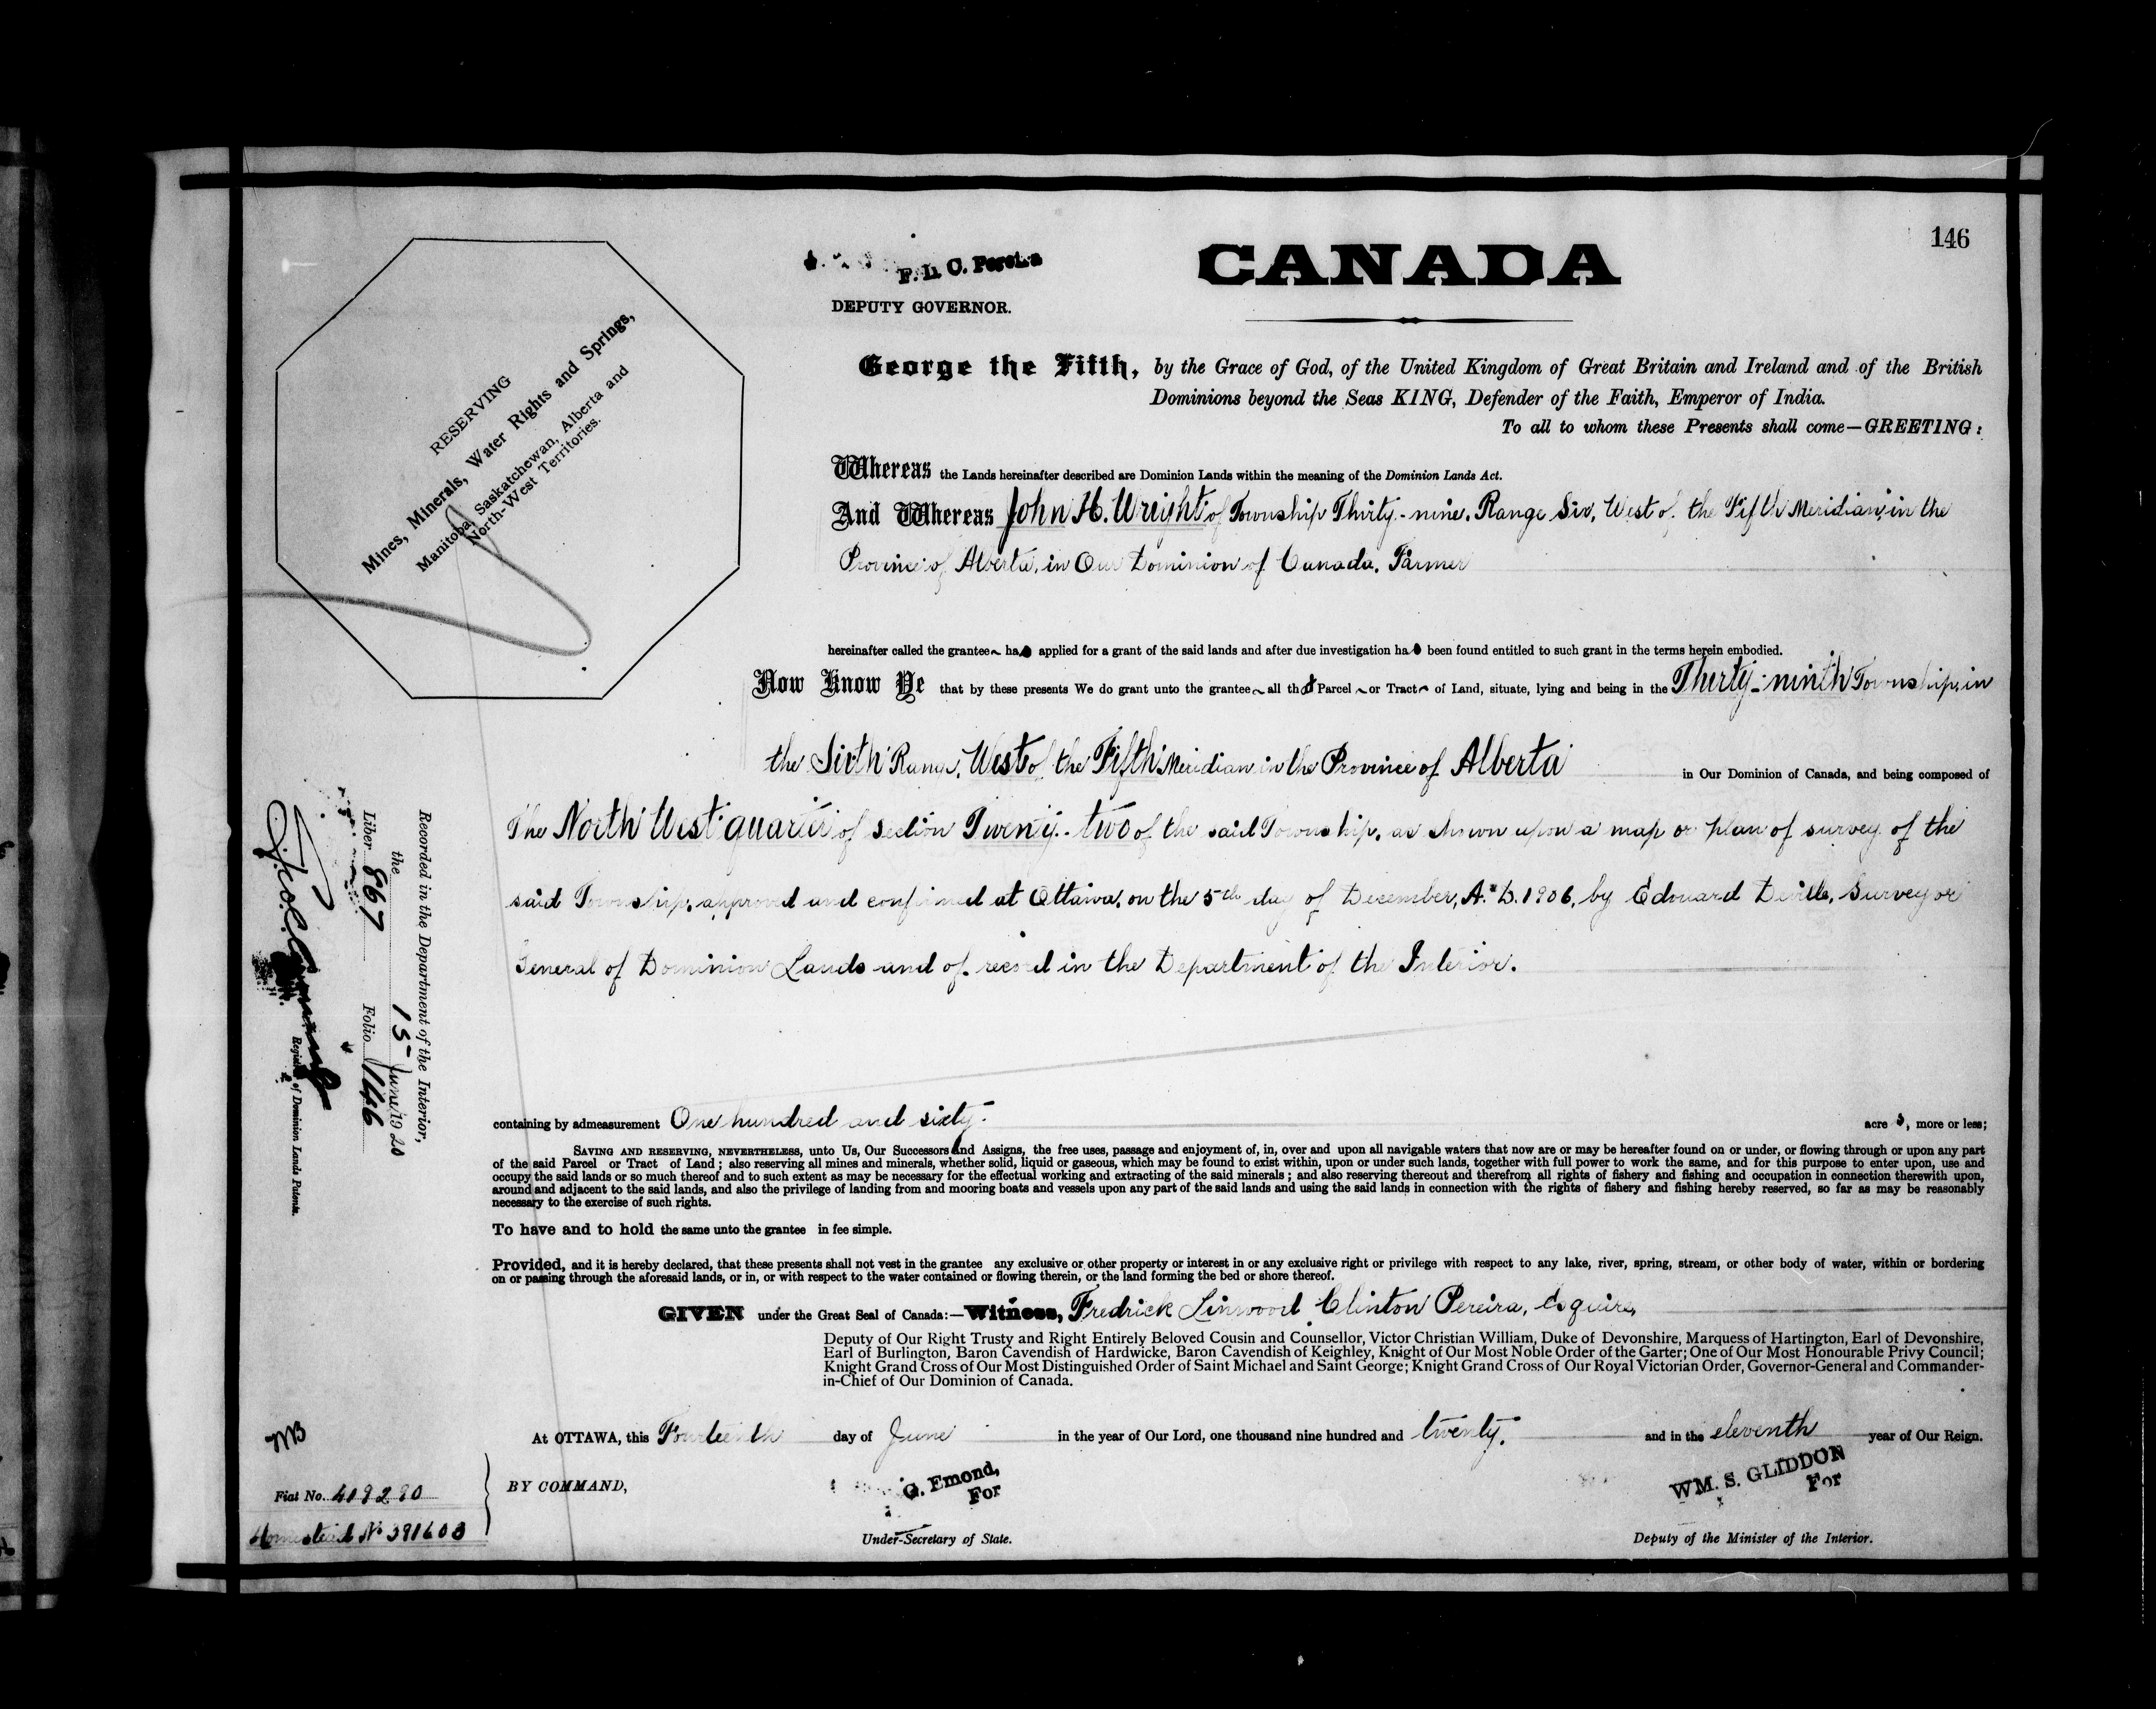 146
CANADA
F. L. C. Pereira
DEPUTY GOVERNOR.
RESERVING
Mines, Minerals, Water Rights and Springs,
Manitoba, Saskatchewan, Alberta and
North-West Territories.
George the Fifth, by the Grace of God, of the United Kingdom of Great Britain and Ireland and of the British
Dominions beyond the Seas KING, Defender of the Faith, Emperor of India.
To all to whom these Presents shall come—GREETING:
Whereas the Lands hereinafter described are Dominion Lands within the meaning of the Dominion Lands Act.
And Whereas John H. Wright of Township Thirty-nine, Range Six, West of the Fifth Meridian, in the
Province of Alberta, in Our Dominion of Canada, Farmer
hereinafter called the grantee has applied for a grant of the said lands and after due investigation has been found entitled to such grant in the terms herein embodied.
Now Know Ye that by these presents We do grant unto the grantee all that Parcel or Tract of Land, situate, lying and being in the Thirty-ninth Township, in
the Sixth Range, West of the Fifth Meridian in the Province of Alberta in Our Dominion of Canada, and being composed of
The North West quarter of section Twenty-two of the said Township, as shown upon a map or plan of survey of the
said Township, approved and confirmed at Ottawa, on the 5th day of December, A.D. 1906, by Edouard Deville, Surveyor
General of Dominion Lands and of record in the Department of the Interior.
containing by admeasurement One hundred and sixty acres, more or less;
SAVING AND RESERVING, NEVERTHELESS, unto Us, Our Successors and Assigns, the free uses, passage and enjoyment of, in, over and upon all navigable waters that now are or may be hereafter found on or under, or flowing through or upon any part
of the said Parcel or Tract of Land; also reserving all mines and minerals, whether solid, liquid or gaseous, which may be found to exist within, upon or under such lands, together with full power to work the same, and for this purpose to enter upon, use and
occupy the said lands or so much thereof and to such extent as may be necessary for the effectual working and extracting of the said minerals; and also reserving thereout and therefrom all rights of fishery and fishing and occupation in connection therewith upon,
around and adjacent to the said lands, and also the privilege of landing from and mooring boats and vessels upon any part of the said lands and using the said lands in connection with the rights of fishery and fishing hereby reserved, so far as may be reasonably
necessary to the exercise of such rights.
To have and to hold the same unto the grantee in fee simple.
Provided, and it is hereby declared, that these presents shall not vest in the grantee any exclusive or other property or interest in or any exclusive right or privilege with respect to any lake, river, spring, stream, or other body of water, within or bordering
on or passing through the aforesaid lands, or in, or with respect to the water contained or flowing therein, or the land forming the bed or shore thereof.
GIVEN under the Great Seal of Canada:—Witness, Fredrick Linwood Clinton Pereira, Esquire,
Deputy of Our Right Trusty and Right Entirely Beloved Cousin and Counsellor, Victor Christian William, Duke of Devonshire, Marquess of Hartington, Earl of Devonshire,
Earl of Burlington, Baron Cavendish of Hardwicke, Baron Cavendish of Keighley, Knight of Our Most Noble Order of the Garter; One of Our Most Honourable Privy Council;
Knight Grand Cross of Our Most Distinguished Order of Saint Michael and Saint George; Knight Grand Cross of Our Royal Victorian Order, Governor-General and Commander-
in-Chief of Our Dominion of Canada.
At OTTAWA, this Fourteenth day of June in the year of Our Lord, one thousand nine hundred and twenty, and in the eleventh year of Our Reign.
BY COMMAND,
G. Emond,
For
Under-Secretary of State.
WM. S. GLIDDON
For
Deputy of the Minister of the Interior.
Recorded in the Department of the Interior,
the 15 June 1920
Liber 867 Folio 146
Registrar of Dominion Lands Patents.
MB
Fiat No. 419290
Homestead No 391603